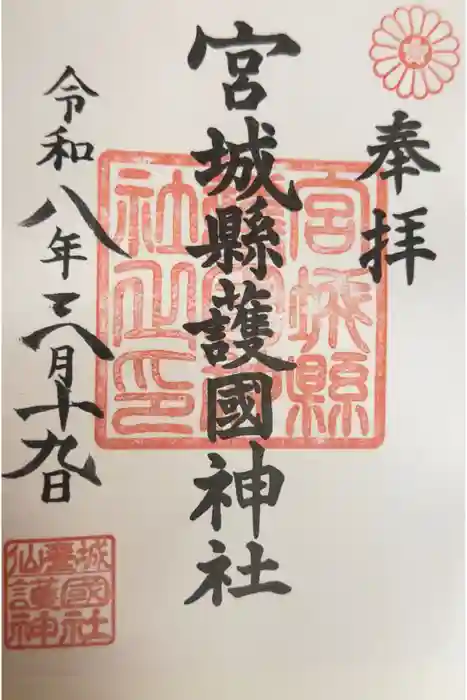 奉拝
宮城縣護國神社
令和八年三月十九日
宮城縣
護國神
社之印
仙臺城
護國
神社